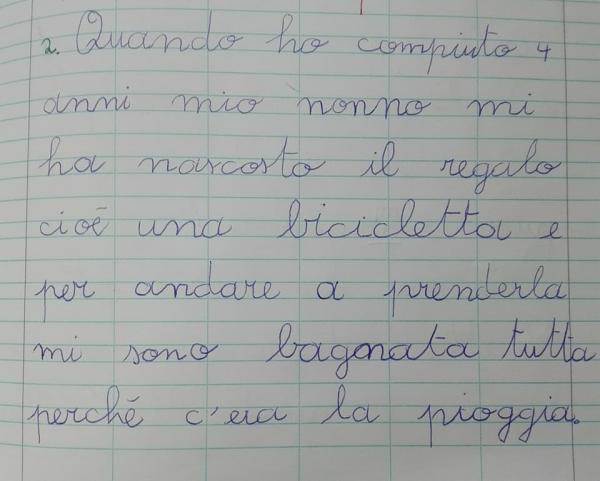 2. Quando ho compiuto 4
anni mio nonno mi
ha nascosto il regalo
cioè una bicicletta e
per andare a prenderla
mi sono bagnata tutta
perché c'era la pioggia.